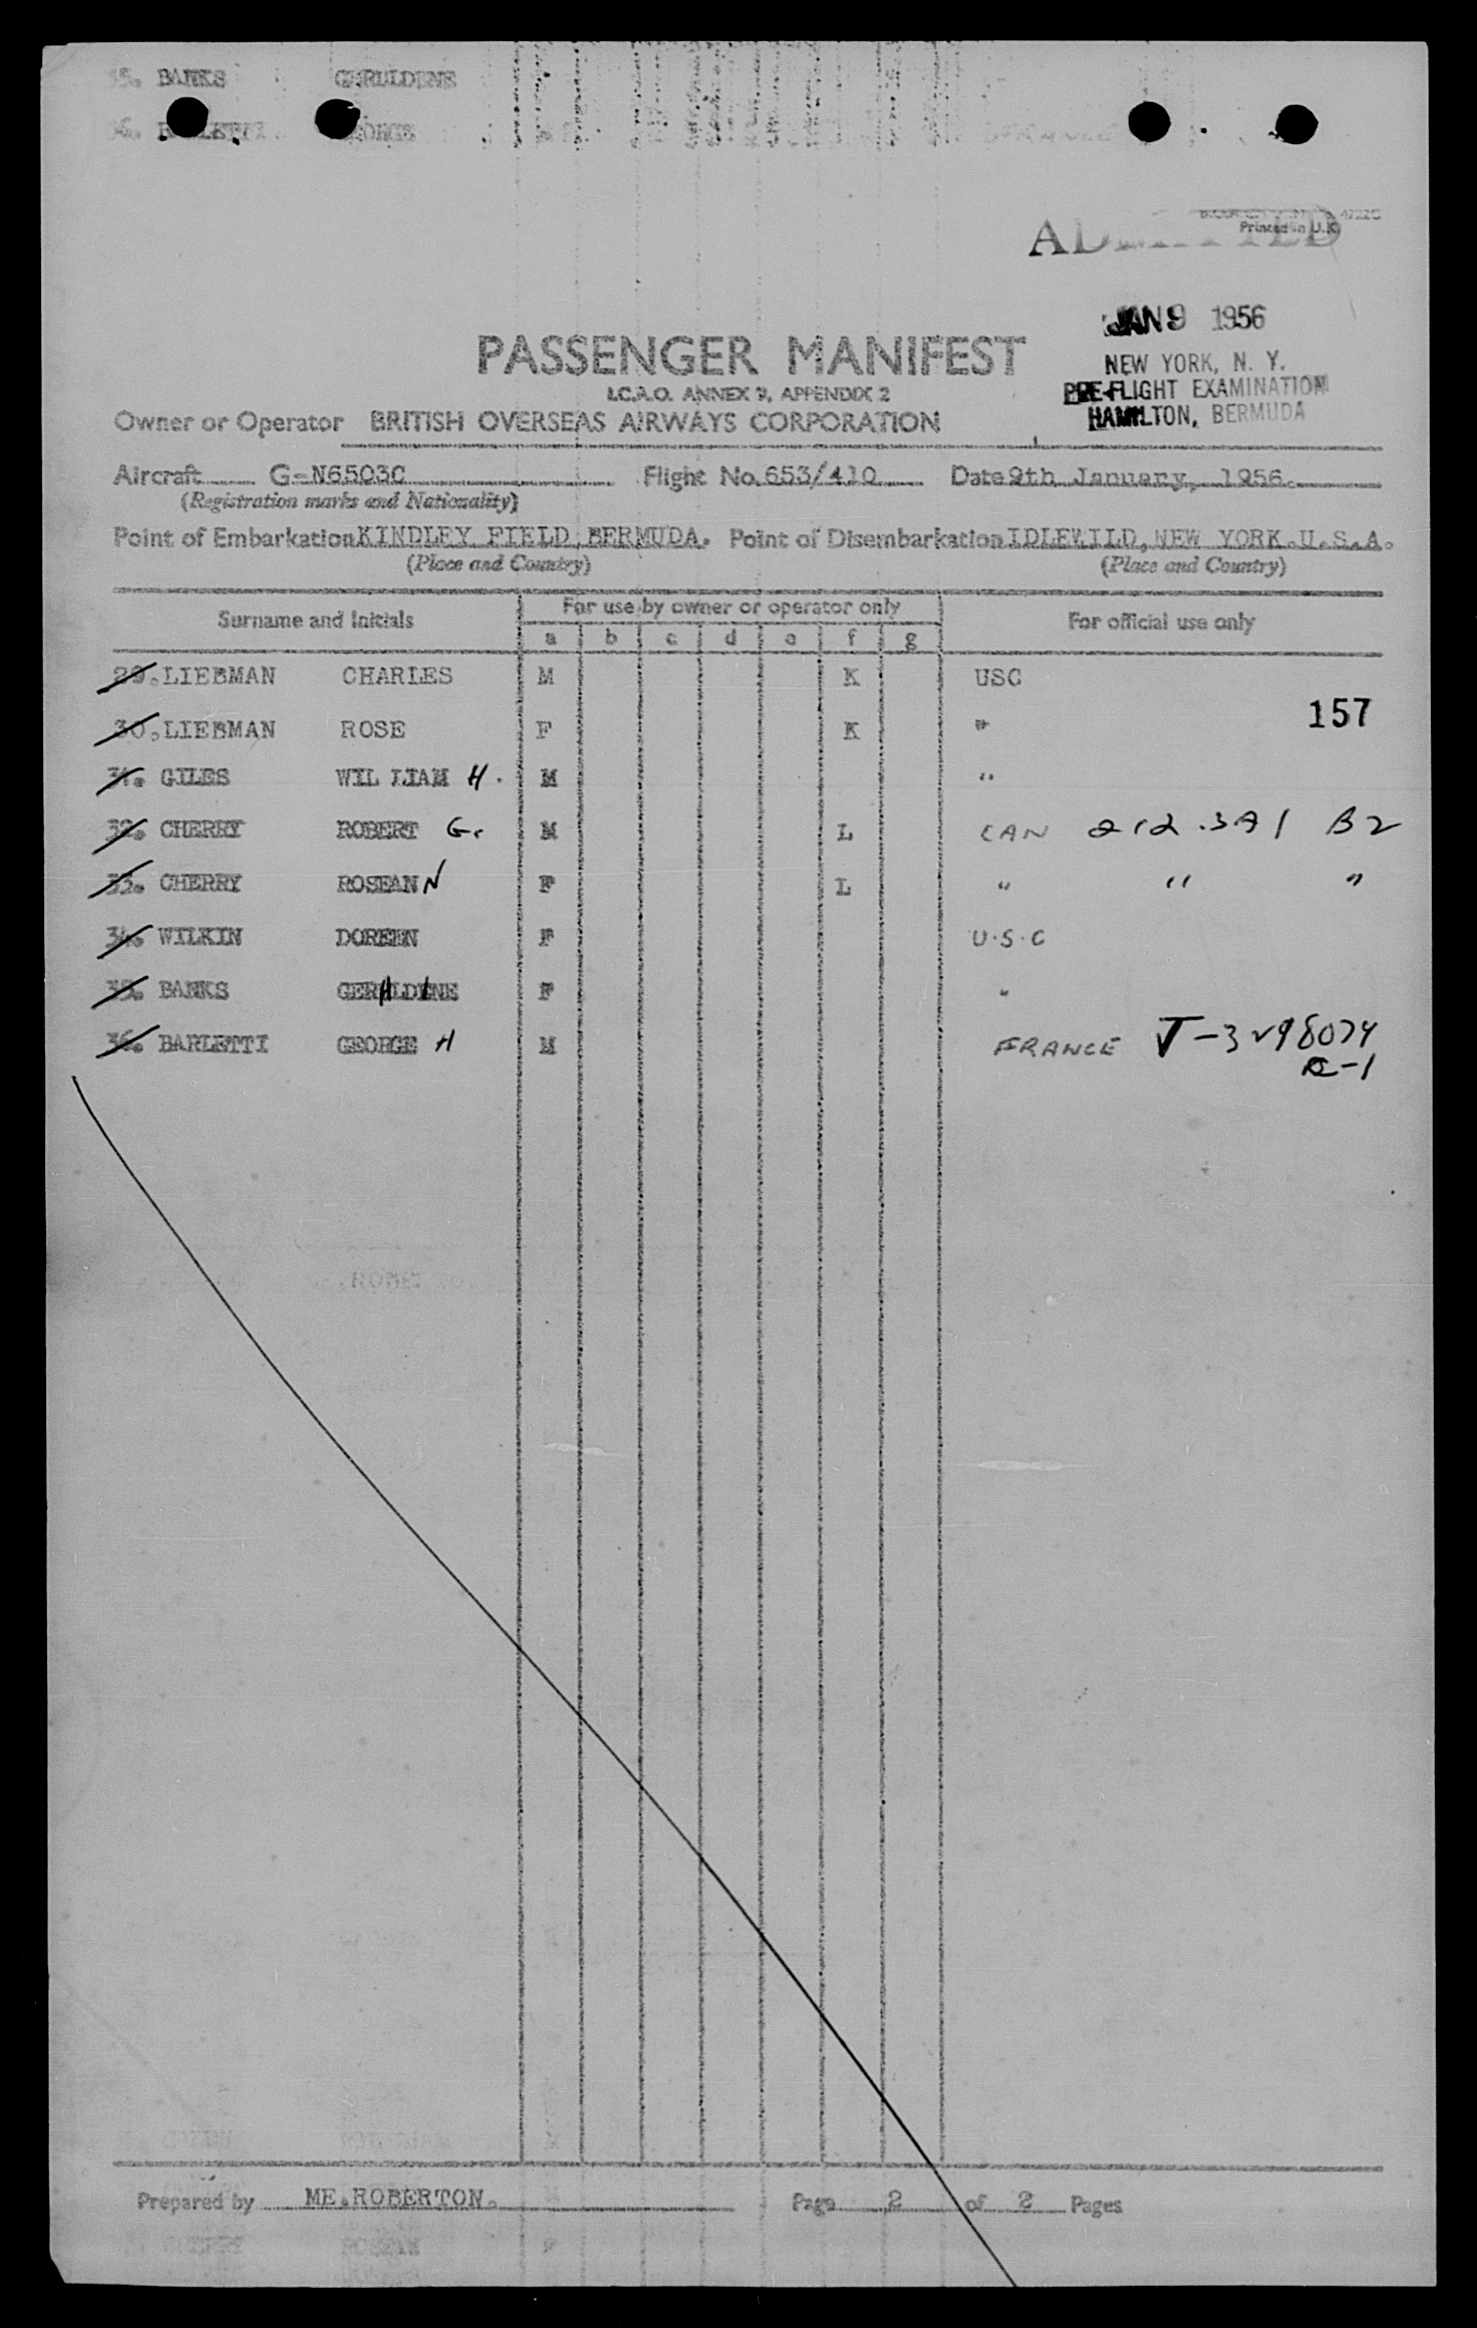 35. BANKS GERULDENE
GEORGE
ADMITTED
Printed in U.K.
JAN 9 1956
NEW YORK, N. Y.
PRE-FLIGHT EXAMINATION
HAMILTON, BERMUDA
PASSENGER MANIFEST
I.C.A.O. ANNEX 9, APPENDIX 2
Owner or Operator BRITISH OVERSEAS AIRWAYS CORPORATION
Aircraft G-N6503C Flight No. 653/410 Date 9th January, 1956.
(Registration marks and Nationality)
Point of Embarkation KINDLEY FIELD, BERMUDA. Point of Disembarkation IDLEWILD, NEW YORK.U.S.A.
(Place and Country) (Place and Country)
Surname and Initials For use by owner or operator only For official use only
a b c d e f g
29. LIEBMAN CHARLES M K USC
157
30. LIEBMAN ROSE F K "
31. GILES WIL LIAM H. M "
32. CHERRY ROBERT G. M L CAN 212.321 B2
33. CHERRY ROSEANN F L " " "
34. WILKIN DOREEN F U.S.C
35. BANKS GERALDINE F "
36. BARLETTI GEORGE H M FRANCE V-3298074
Prepared by ME.ROBERTON. Page 2 of 2 Pages